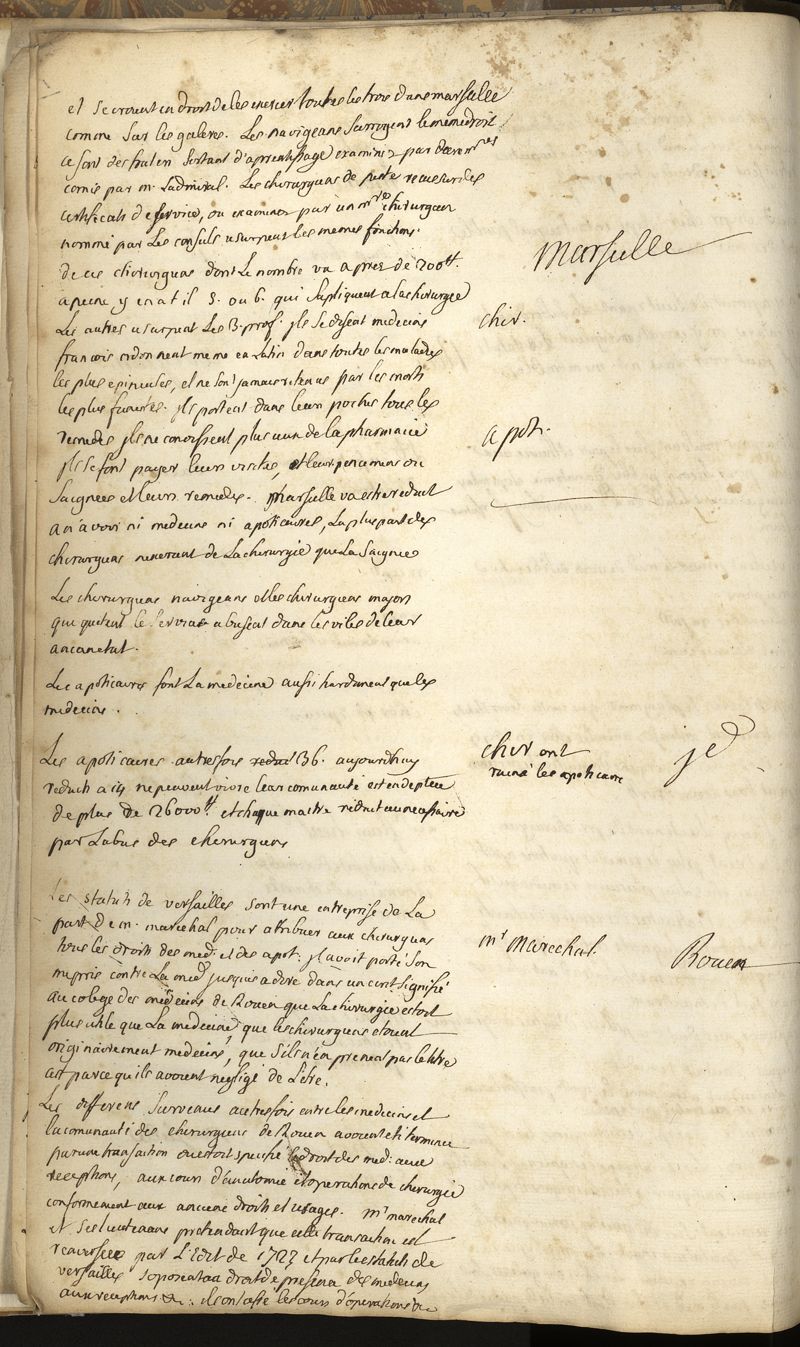 et se croient en droit de les exercer toutes les trois dans marseille
comme sur les galeres. Les navigeans s'arrogent le meme droit
ce sont des fraters sortant d'aprentissage examinez par deux mres
comis par mr. Ladmiral. Les chirurgiens de suite receus sur des
certificats de service, ou examinez par un mre chirurgien
nommé par les consuls usurpent les memes fonctions.
de ces chirurgiens dont le nombre va a pres de 200
a peine y en a t il 5. ou 6. qui s'apliquent a la chirurgie
Les autres usurpent les 3. prof. jls se disent medecins
francois ordonnent meme en latin dans toutes les maladies
les plus epineuses, et ne sont jamais retenus par les morts
les plus funestes. jls portent dans leurs poches tous les
remedes jls ne connoissent plus aucun de la pharmacie
jls se font payer leurs visites, et leurs pencemens ou
saignees et leurs remedes. Marseille va estre reduit
a n'avoir ni medecins ni apoticaires, la plus part des
chirurgiens n'exercent de la chirurgie que la saignée
Les chirurgiens navigeans et les chirurgiens majors
qui quitent le service abusent dans les viles de leur
ancien etat.
Les apoticaires font la medecine aussi hardiment que les
medecins.
Marseille
chir.
apoti.
Les apoticaires autrefois reduits 36. aujourdhuy
reduits a 14 ne peuvent vivre leur comunauté est endeptée
de plus de 26000 et chaque maitre réduit au necessaire
par l'abus des chirurgiens
chir ont
ruiné les apoticaire
jd
Les statuts de versailles sont une entreprise de la
part de m. marechal pour atribuer aux chirurgiens
tous les droits des med. et des apot. jl avoit porté son
mepris contre la med. jusques a dire dans un ecrit signifié
au colege des medecins de Rouen que la chirurgie estoit
plus utile que la medecine, que les chirurgiens etoient
originairement medecins, que s'ils n'en prenent pas le titre
cest parce qu'ils avoient negligé de l'etre.
mr Marechal.
Rouen
Les differens survenus autrefois entre les medecins et
la comunauté des chirurgiens de Rouen avoient eté terminez
par une transaction ou estoit specifié le droit des med. aux
receptions, aux cours d'anatomie et operations de chirurgie
conformement aux anciens droits et usages. mr marechal
et ses lieutenans pretendant que cette transaction est
renversée par l'Edit de 1723 et par les statuts de
versailles s'oposent au droit de presence des medecins
aux receptions &c. ils ont cessé les cours d'operations ou